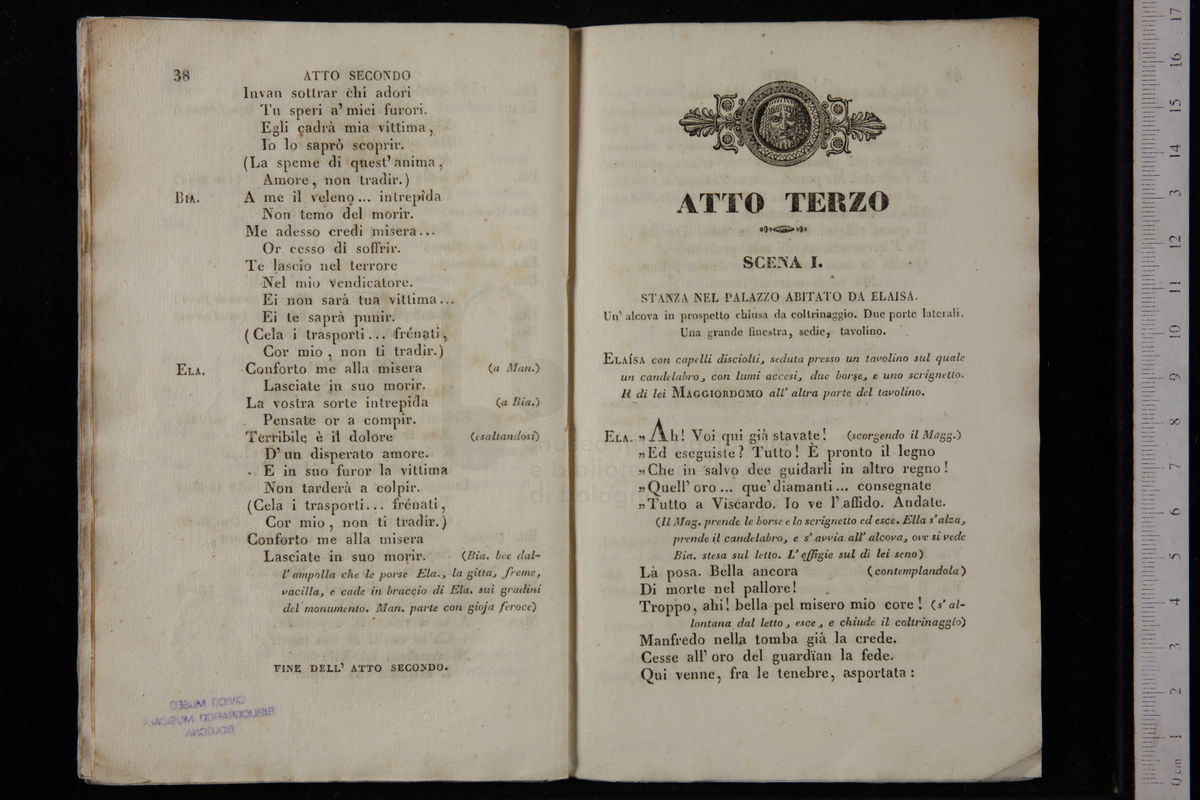 38 ATTO SECONDO
Invan sottrar chi adori
Tu speri a' miei furori.
Egli cadrà mia vittima,
Io lo saprò scoprir.
(La speme di quest' anima,
Amore, non tradir.)
BIA. A me il veleno... intrepida
Non temo del morir.
Me adesso credi misera...
Or cesso di soffrir.
Te lascio nel terrore
Nel mio vendicatore.
Ei non sarà tua vittima...
Ei te saprà punir.
(Cela i trasporti... frénati,
Cor mio, non ti tradir.)
ELA. Conforto me alla misera (a Man.)
Lasciate in suo morir.
La vostra sorte intrepida (a Bia.)
Pensate or a compir.
Terribile è il dolore (esaltandosi)
D' un disperato amore.
E in suo furor la vittima
Non tarderà a colpir.
(Cela i trasporti... frénati,
Cor mio, non ti tradir.)
Conforto me alla misera
Lasciate in suo morir. (Bia. bee dal-
l' ampolla che le porse Ela., la gitta, freme,
vacilla, e cade in braccio di Ela. sui gradini
del monumento. Man. parte con gioja feroce)
FINE DELL' ATTO SECONDO.
CIVICO MUSEO
BIBLIOGRAFICO MUSICALE
BOLOGNA
ATTO TERZO
SCENA I.
STANZA NEL PALAZZO ABITATO DA ELAISA.
Un' alcova in prospetto chiusa da coltrinaggio. Due porte laterali.
Una grande finestra, sedie, tavolino.
ELAÍSA con capelli disciolti, seduta presso un tavolino sul quale
un candelabro, con lumi accesi, due borse, e uno scrignetto.
Il di lei MAGGIORDOMO all' altra parte del tavolino.
ELA. » Ah! Voi qui già stavate! (scorgendo il Magg.)
» Ed eseguiste? Tutto! È pronto il legno
» Che in salvo dee guidarli in altro regno!
» Quell' oro... que' diamanti... consegnate
» Tutto a Viscardo. Io ve l' affido. Andate.
(Il Mag. prende le borse e lo scrignetto ed esce. Ella s' alza,
prende il candelabro, e s' avvia all' alcova, ove si vede
Bia. stesa sul letto. L' effigie sul di lei seno)
Là posa. Bella ancora (contemplandola)
Di morte nel pallore!
Troppo, ahi! bella pel misero mio core! (s' al-
lontana dal letto, esce, e chiude il coltrinaggio)
Manfredo nella tomba già la crede.
Cesse all' oro del guardïan la fede.
Qui venne, fra le tenebre, asportata:
museo
e biblioteca
di bologna
0 cm 1 2 3 4 5 6 7 8 9 10 11 12 13 14 15 16 17